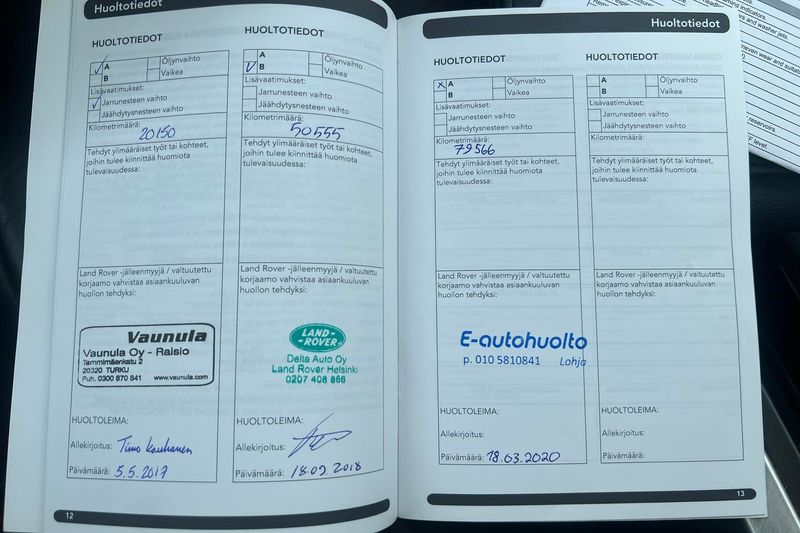 Huoltotiedot
HUOLTOTIEDOT
A
B
Öljynvaihto
Vaikea
Lisävaatimukset:
Jarrunesteen vaihto
Jäähdytysnesteen vaihto
Kilometrimäärä:
20150
Tehdyt ylimääräiset työt tai kohteet,
joihin tulee kiinnittää huomiota
tulevaisuudessa:
Land Rover -jälleenmyyjä / valtuutettu
korjaamo vahvistaa asiaankuuluvan
huollon tehdyksi:
Vaunula
Vaunula Oy - Raisio
Tammimäenkatu 2
20320 TURKU
Puh. 0300 870 841 www.vaunula.com
HUOLTOLEIMA:
Allekirjoitus: Timo Kauhanen
Päivämäärä: 5.5.2017
12
HUOLTOTIEDOT
A
B
Öljynvaihto
Vaikea
Lisävaatimukset:
Jarrunesteen vaihto
Jäähdytysnesteen vaihto
Kilometrimäärä:
50555
Tehdyt ylimääräiset työt tai kohteet,
joihin tulee kiinnittää huomiota
tulevaisuudessa:
Land Rover -jälleenmyyjä / valtuutettu
korjaamo vahvistaa asiaankuuluvan
huollon tehdyksi:
LAND-
ROVER
Delta Auto Oy
Land Rover Helsinki
0207 408 868
HUOLTOLEIMA:
Allekirjoitus:
Päivämäärä: 18.09.2018
Huoltotiedot
HUOLTOTIEDOT
A
B
Öljynvaihto
Vaikea
Lisävaatimukset:
Jarrunesteen vaihto
Jäähdytysnesteen vaihto
Kilometrimäärä:
79566
Tehdyt ylimääräiset työt tai kohteet,
joihin tulee kiinnittää huomiota
tulevaisuudessa:
Land Rover -jälleenmyyjä / valtuutettu
korjaamo vahvistaa asiaankuuluvan
huollon tehdyksi:
E-autohuolto
p. 010 5810841 Lohja
HUOLTOLEIMA:
Allekirjoitus:
Päivämäärä: 18.03.2020
HUOLTOTIEDOT
A
B
Öljynvaihto
Vaikea
Lisävaatimukset:
Jarrunesteen vaihto
Jäähdytysnesteen vaihto
Kilometrimäärä:
Tehdyt ylimääräiset työt tai kohteet,
joihin tulee kiinnittää huomiota
tulevaisuudessa:
Land Rover -jälleenmyyjä / valtuutettu
korjaamo vahvistaa asiaankuuluvan
huollon tehdyksi:
HUOLTOLEIMA:
Allekirjoitus:
Päivämäärä:
13
indicators.
and washer jets.
even wear and suitable
reservoirs.
level.